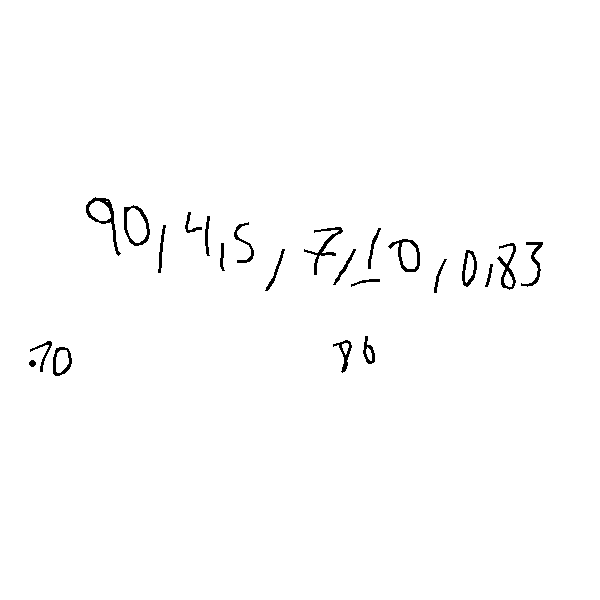 90,4,5,7,10,0,83
.70 86